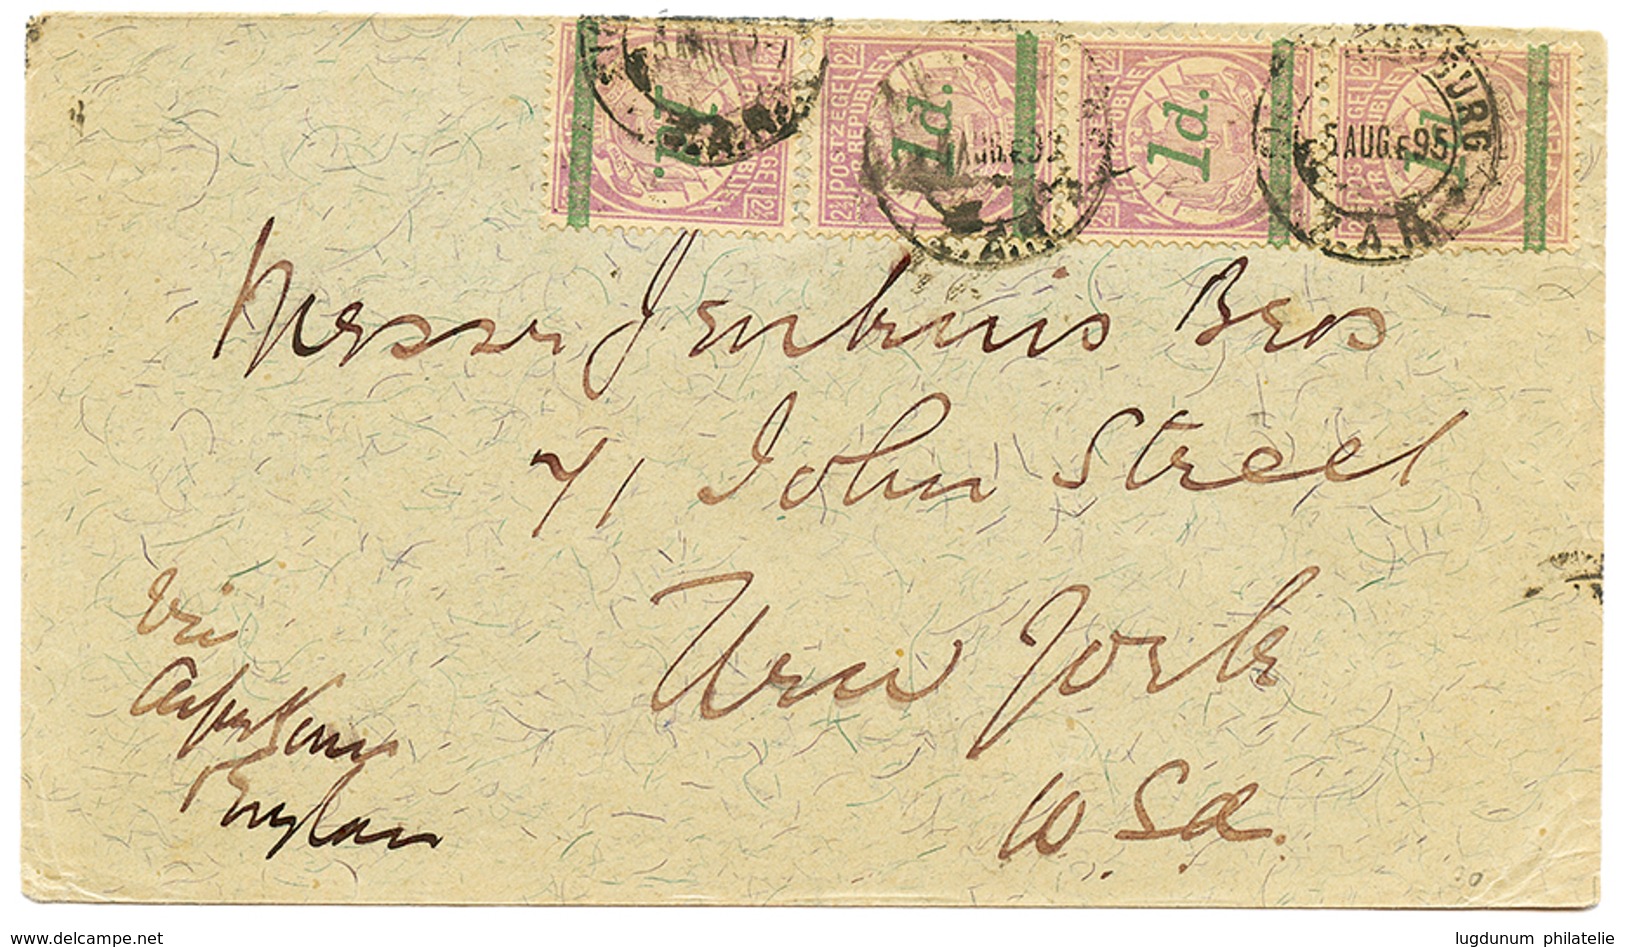 1d.
1d.
1d.
1d.
POSTZEGEL
REPUBLIEK
5 AUG E 95
BURG
Z.A.R.
Messrs Jenkins Bros
71 John Street
New York
U.S.a.
Via
Cape Town
England
delcampe.net
lugdunum philatelie